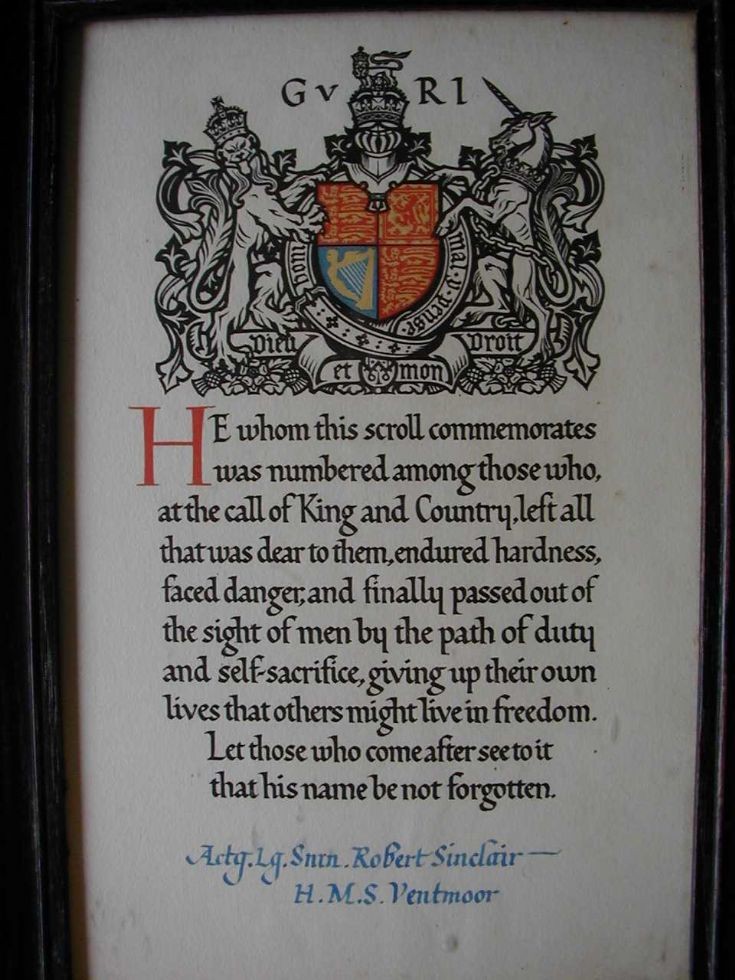 GV RI
honi mal·y·pense
Dieu et mon Droit
HE whom this scroll commemorates
was numbered among those who,
at the call of King and Country, left all
that was dear to them, endured hardness,
faced danger, and finally passed out of
the sight of men by the path of duty
and self-sacrifice, giving up their own
lives that others might live in freedom.
Let those who come after see to it
that his name be not forgotten.
Actg. Lg. Smn. Robert Sinclair —
H.M.S. Ventmoor